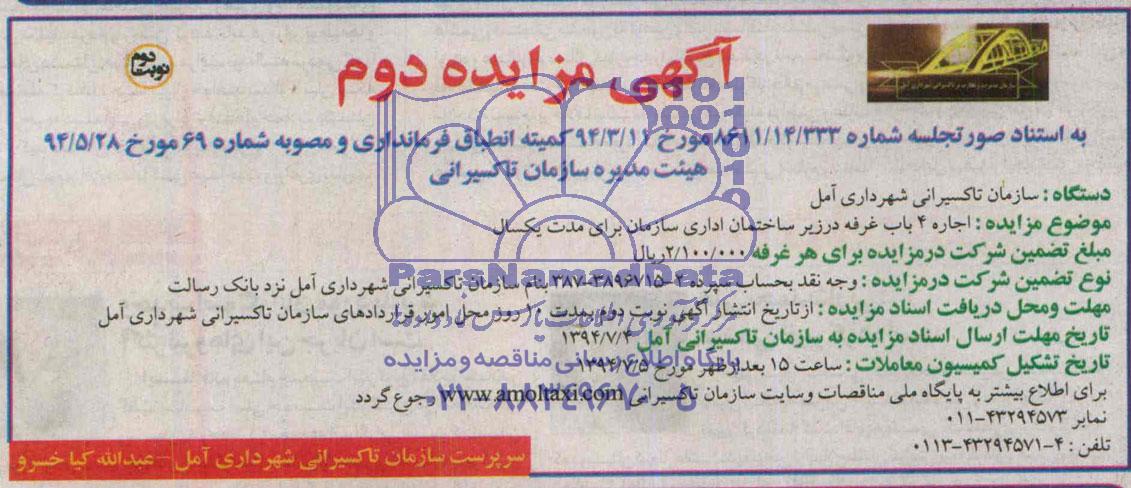 آگهی مزایده دوم
نوبت دوم
به استناد صورتجلسه شماره ۸۶۱۱/۱۴/۳۳۳ مورخ ۹۴/۳/۱۱ کمیته انطباق فرمانداری و مصوبه شماره ۶۹ مورخ ۹۴/۵/۲۸
هیئت مدیره سازمان تاکسیرانی
دستگاه : سازمان تاکسیرانی شهرداری آمل
موضوع مزایده : اجاره ۴ باب غرفه درزیر ساختمان اداری سازمان برای مدت یکسال
مبلغ تضمین شرکت درمزایده برای هر غرفه ۲/۱۰۰/۰۰۰ ریال
نوع تضمین شرکت درمزایده : وجه نقد بحساب سپرده ۲-۳۸۹۶۷۱۵-۳۸۷ بنام سازمان تاکسیرانی شهرداری آمل نزد بانک رسالت
مهلت ومحل دریافت اسناد مزایده : ازتاریخ انتشار آگهی نوبت دوم بمدت ۱۰ روز محل امور قراردادهای سازمان تاکسیرانی شهرداری آمل
تاریخ مهلت ارسال اسناد مزایده به سازمان تاکسیرانی آمل ۱۳۹۴/۷/۴
تاریخ تشکیل کمیسیون معاملات : ساعت ۱۵ بعدازظهر مورخ ۱۳۹۴/۷/۵
برای اطلاع بیشتر به پایگاه ملی مناقصات وسایت سازمان تاکسیرانی www.amoltaxi.com رجوع گردد
نمابر ۴۳۲۹۴۵۷۳-۰۱۱
تلفن : ۴-۴۳۲۹۴۵۷۱-۰۱۱۳
سرپرست سازمان تاکسیرانی شهرداری آمل – عبدالله کیا خسرو
ParsNamadData
پایگاه اطلاع رسانی مناقصه و مزایده
۰۲۱-۸۸۳۴۹۶۷۰-۵